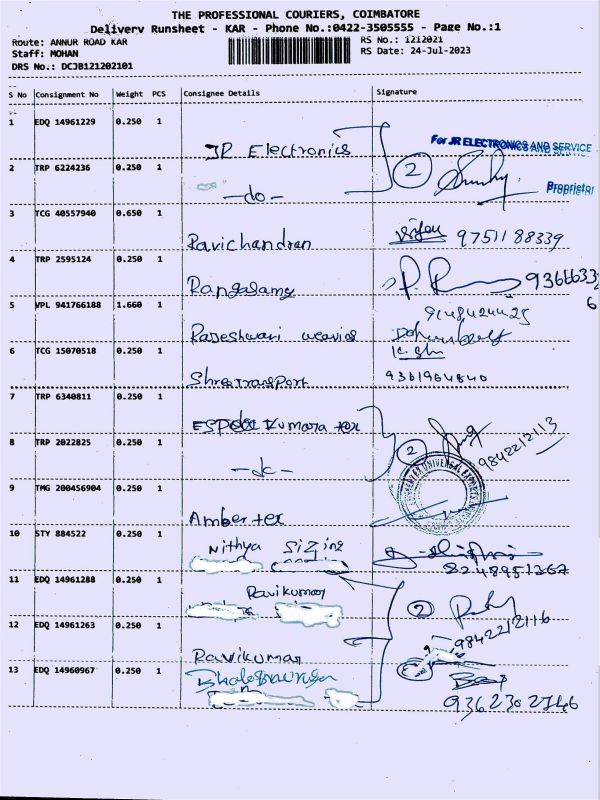 THE PROFESSIONAL COURIERS, COIMBATORE
Delivery Runsheet - KAR - Phone No.:0422-3505555 - Page No.:1
Route: ANNUR ROAD KAR
Staff: MOHAN
DRS No.: DCJB121202101
RS No.: 1212021
RS Date: 24-Jul-2023
S No Consignment No Weight PCS Consignee Details Signature
1 EDQ 14961229 0.250 1 JR Electronics For JR ELECTRONICS AND SERVICE
2 TRP 6224236 0.250 1 -do- 2 Proprietor
3 TCG 40557940 0.650 1 Ravichandran 9751188339
4 TRP 2595124 0.250 1 Rangasamy
5 VPL 941766188 1.660 1 Rajeshwari weaving
6 TCG 15070518 0.250 1 Shree Transport
7 TRP 6340811 0.250 1 Kumara tex
8 TRP 2022825 0.250 1 -do- 2 9842212113
9 TMG 200456904 0.250 1 Amber tex
10 STY 884522 0.250 1 Nithya Sizing 8248951367
11 EDQ 14961288 0.250 1 Ravikumar 2
12 EDQ 14961263 0.250 1 Ravikumar 9842212116
13 EDQ 14960967 0.250 1 9362302746